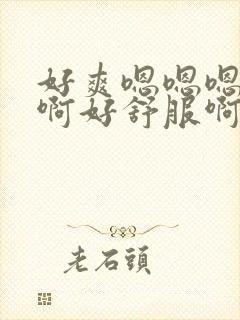 好爽嗯嗯嗯
啊好舒服啊
老石頭